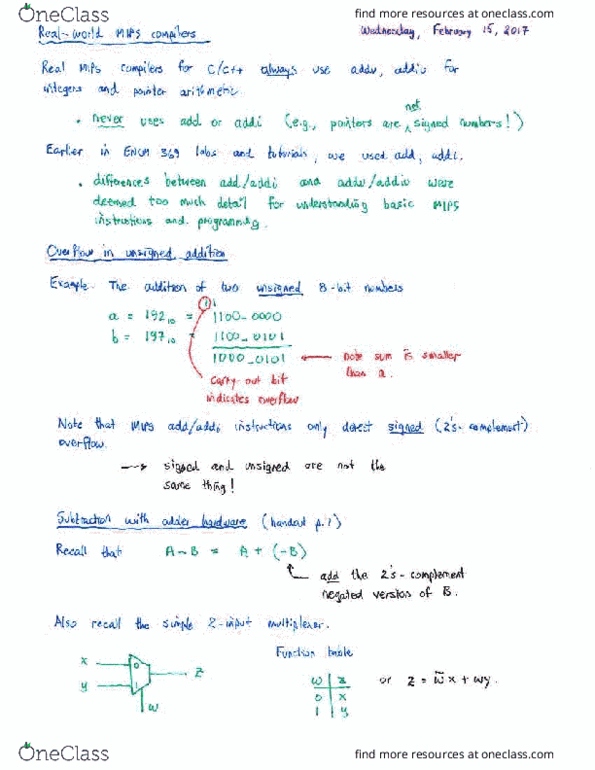 OneClass
find more resources at oneclass.com
Real-world MIPS compilers
Wednesday, February 15, 2017
Real MIPS compilers for C/C++ always use addu, addiu for
integers and pointer arithmetic.
• never uses add or addi (e.g., pointers are not signed numbers!)
Earlier in ENCM 369 labs and tutorials, we used add, addi.
• differences between add/addi and addu/addiu were
deemed too much detail for understanding basic MIPS
instructions and programming.
Overflow in unsigned addition
Example. The addition of two unsigned 8-bit numbers
1 1
a = 192₁₀ = 1100_0000
b = 197₁₀ = 1100_0101
1000_0101 ← note sum is smaller
than a.
carry out bit
indicates overflow
Note that MIPS add/addi instructions only detect signed (2's-complement)
overflow.
→ signed and unsigned are not the
same thing!
Subtraction with adder hardware (handout p.1)
Recall that A-B = A + (-B)
add the 2's-complement
negated version of B.
Also recall the simple 2-input multiplexer.
Function table
x 0 z
y 1
w
w | z or z = w̄x + wy.
0 | x
1 | y
OneClass
find more resources at oneclass.com